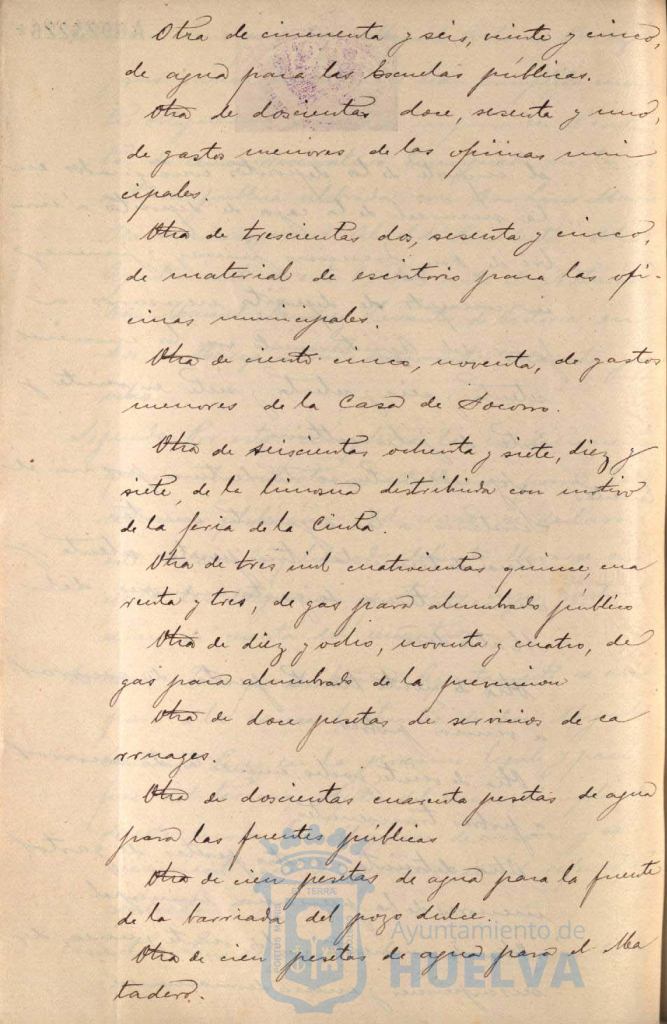 Otra de cincuenta y seis, veinte y cinco,
de agua para las Escuelas públicas.
Otra de doscientas doce, sesenta y uno,
de gastos menores de las oficinas muni
cipales.
Otra de trescientas dos, sesenta y cinco,
de material de escritorio para las ofi-
cinas municipales.
Otra de ciento cinco, noventa, de gastos
menores de la Casa de Socorro.
Otra de seiscientas ochenta y siete, diez y
siete, de la limosna distribuida con motivo
de la feria de la Cinta.
Otra de tres mil cuatrocientas quince, cua
renta y tres, de gas para alumbrado público
Otra de diez y ocho, noventa y cuatro, de
gas para alumbrado de la prevencion
Otra de doce pesetas de servicios de ca
rruages.
Otra de doscientas cuarenta pesetas de agua
para las fuentes públicas
Otra de cien pesetas de agua para la fuente
de la barriada del pozo dulce.
Otra de cien pesetas de agua para el Ma
tadero.
Ayuntamiento de
HUELVA